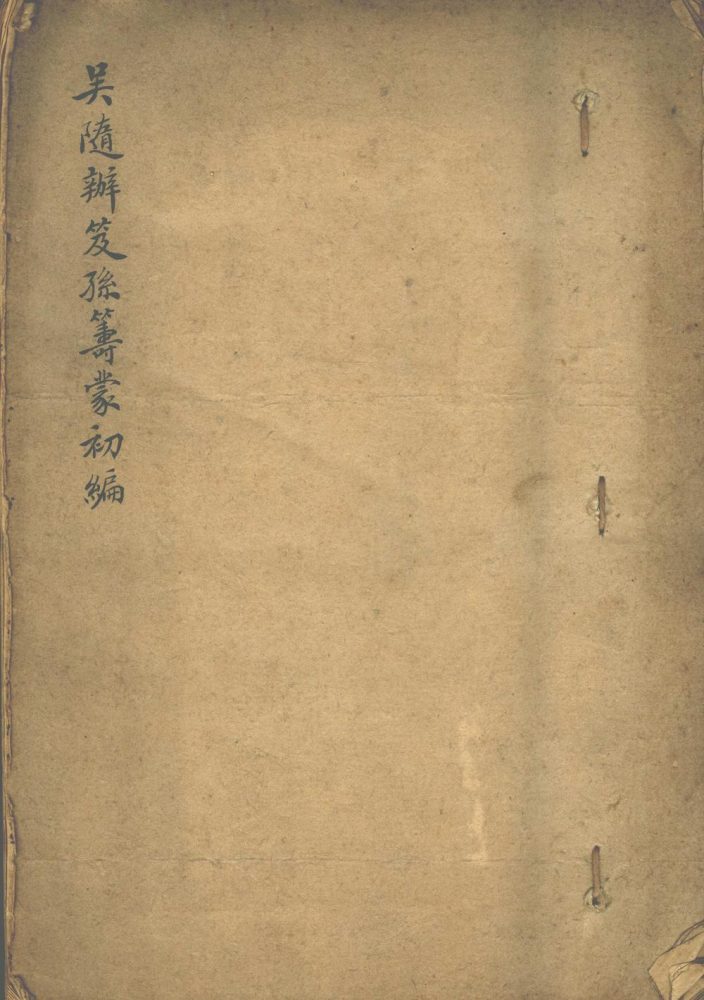 吴隨辦笈孫籌蒙初編